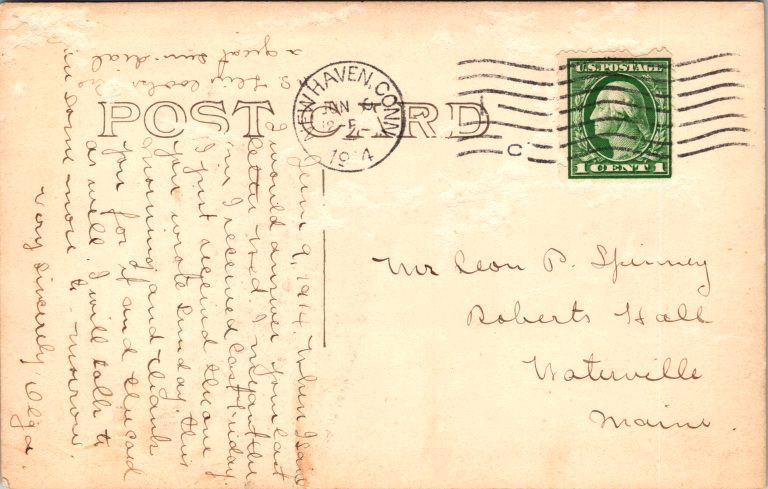 POST CARD
NEW HAVEN, CONN.
JUN 9
1914
C
U.S. POSTAGE
1 CENT 1
Mr Leon P. Spinney
Roberts Hall
Waterville
Maine.
June 9, 1914. When I said
I would answer your last
letter Wed. I meant the
one I received last Friday.
I just received the one
you wrote Sunday, this
morning, and thank
you for it and the card
as well. I will talk to
in some more to-morrow.
Very sincerely, Olga.
looks
a great sun-dial